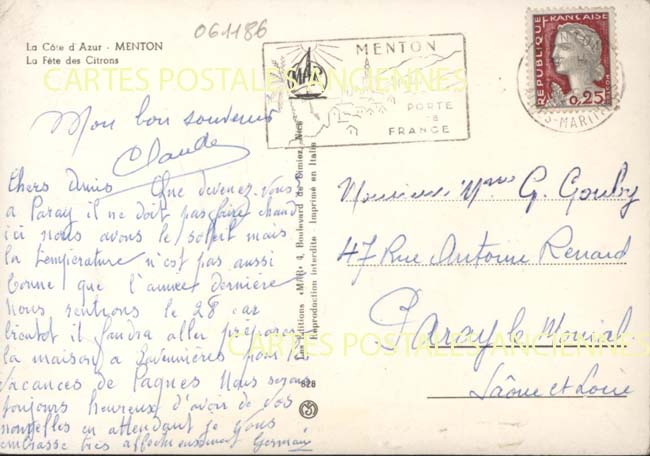 061186
La Côte d'Azur - MENTON
La Fête des Citrons
CARTES POSTALES ANCIENNES
Mon bon souvenir
Claude
Chers Amis Que devenez-vous
a Paray il ne doit pas faire chaud
ici nous avons le soleil mais
la température n'est pas aussi
bonne que l'année dernière
Nous rentrons le 28 car
bientot il faudra aller préparer
la maison a pour les
vacances de Paques Nous serons
toujours heureux d'avoir de vos
nouvelles en attendant je vous
embrasse très affectueusement Germaine
Les Editions «MAR» 4, Boulevard de Cimiez, Nice
Reproduction interdite Imprimé en Italie
828
MENTON
MAR
PORTE
DE
FRANCE
REPUBLIQUE FRANÇAISE
0,25
MENTON
S-MARITIMES
Monsieur Mme G. Gouby
47 Rue Antoine Renard
Paray le Monial
Saône et Loire
CARTES POSTALES ANCIENNES